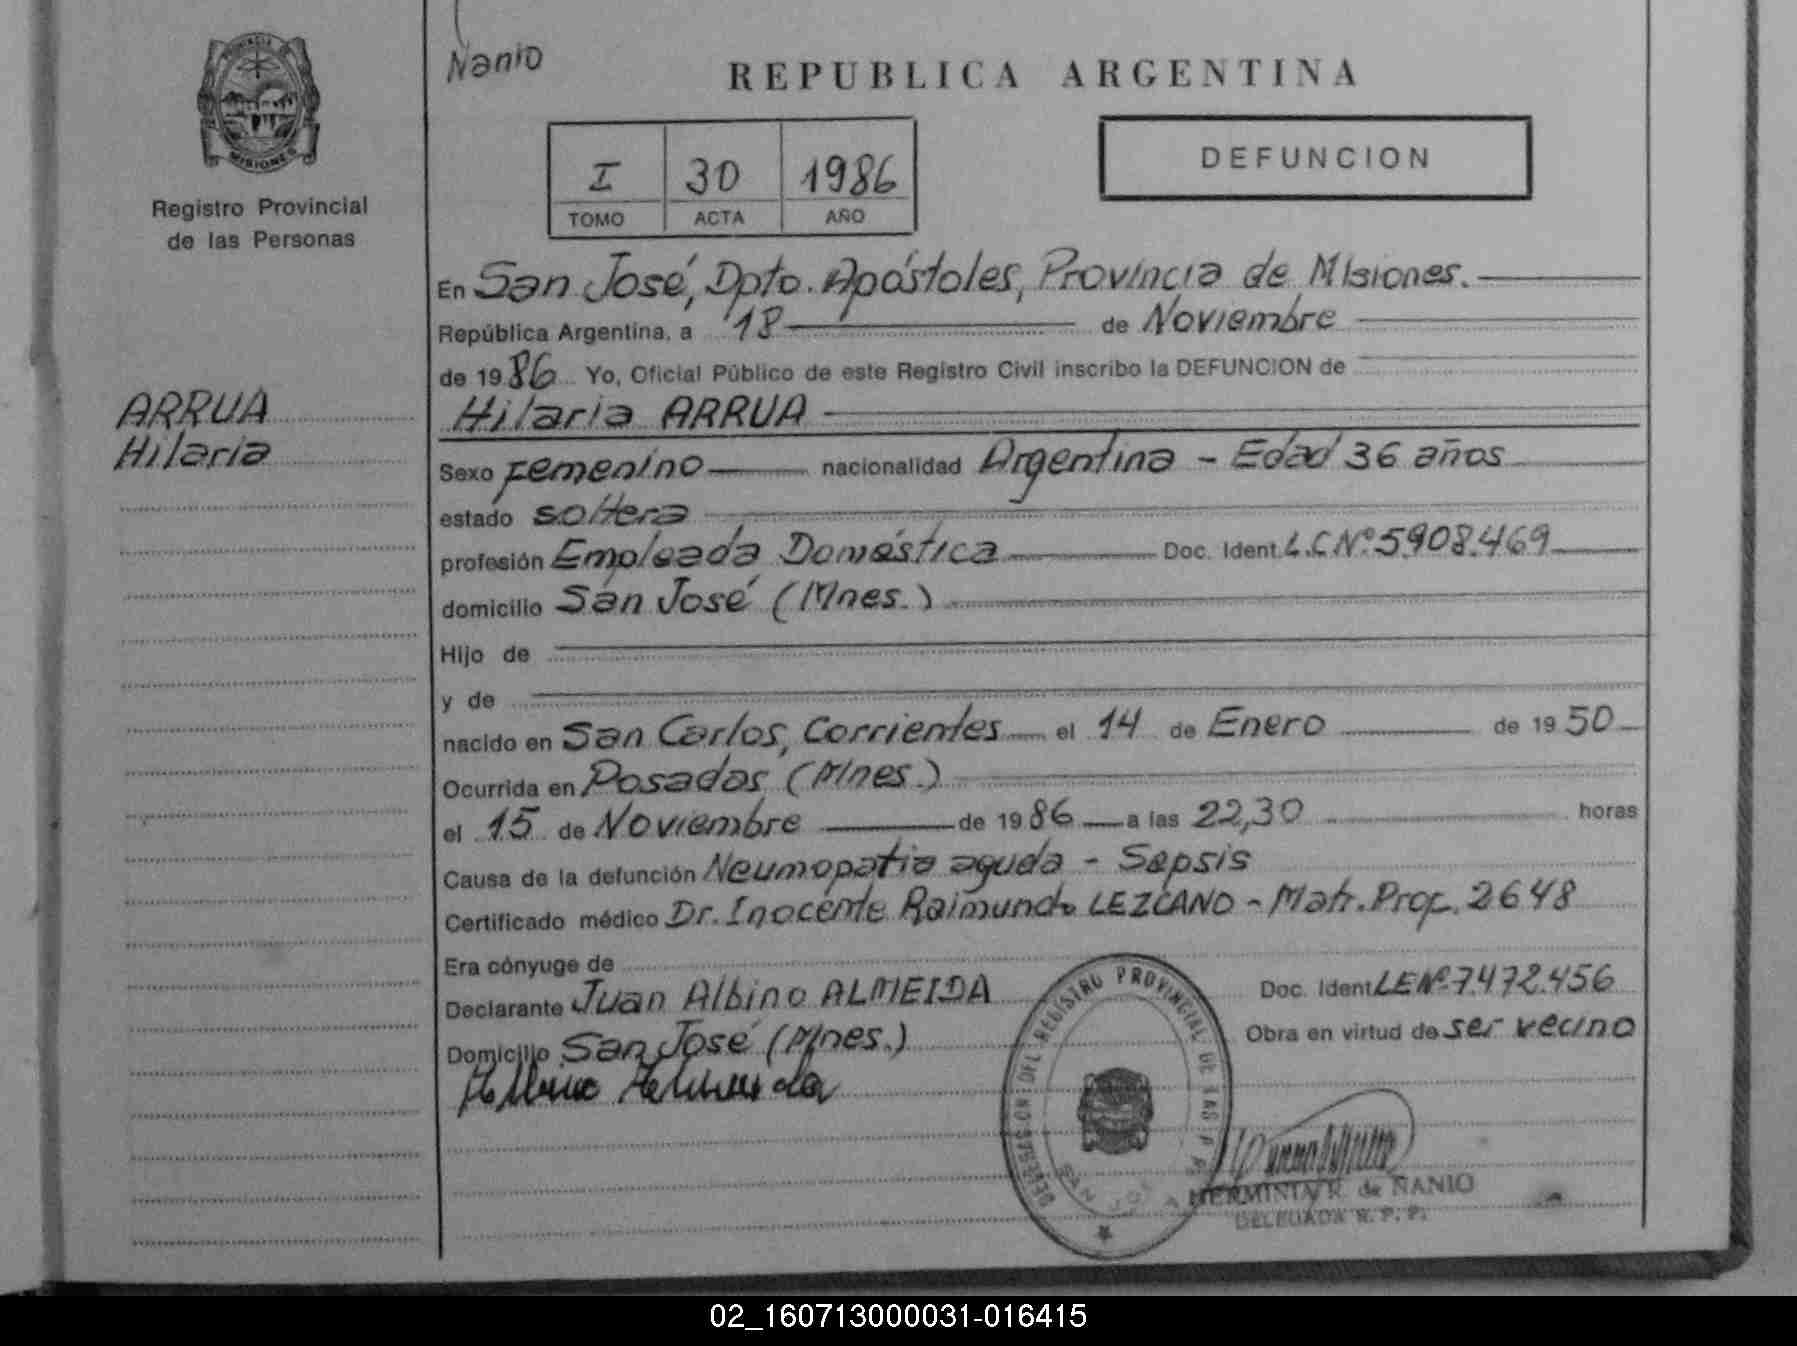 Nanio
REPUBLICA ARGENTINA
PROVINCIA DE
MISIONES
Registro Provincial
de las Personas
I 30 1986
TOMO ACTA AÑO
DEFUNCION
ARRUA
Hilaria
En San José, Dpto. Apóstoles, Provincia de Misiones.
República Argentina, a 18 de Noviembre
de 1986 Yo, Oficial Público de este Registro Civil inscribo la DEFUNCION de
Hilaria ARRUA
Sexo Femenino nacionalidad Argentina - Edad 36 años
estado soltera
profesión Empleada Doméstica Doc. Ident. L.C.Nº.5.908.469
domicilio San José (Mnes.)
Hijo de
y de
nacido en San Carlos, Corrientes el 14 de Enero de 1950
Ocurrida en Posadas (Mnes.)
el 15 de Noviembre de 1986 a las 22,30 horas
Causa de la defunción Neumopatia aguda - Sepsis
Certificado médico Dr. Inocente Raimundo LEZCANO - Matr. Prof. 2648
Era cónyuge de
Declarante Juan Albino ALMEIDA Doc. Ident. LE Nº 7.472.456
Domicilio San José (Mnes.) Obra en virtud de ser vecino
Albino Almeida
DELEGACION DEL REGISTRO PROVINCIAL DE LAS
SAN JOSE
HERMINIA R. de NANIO
DELEGADA R. P. P.
02_160713000031-016415